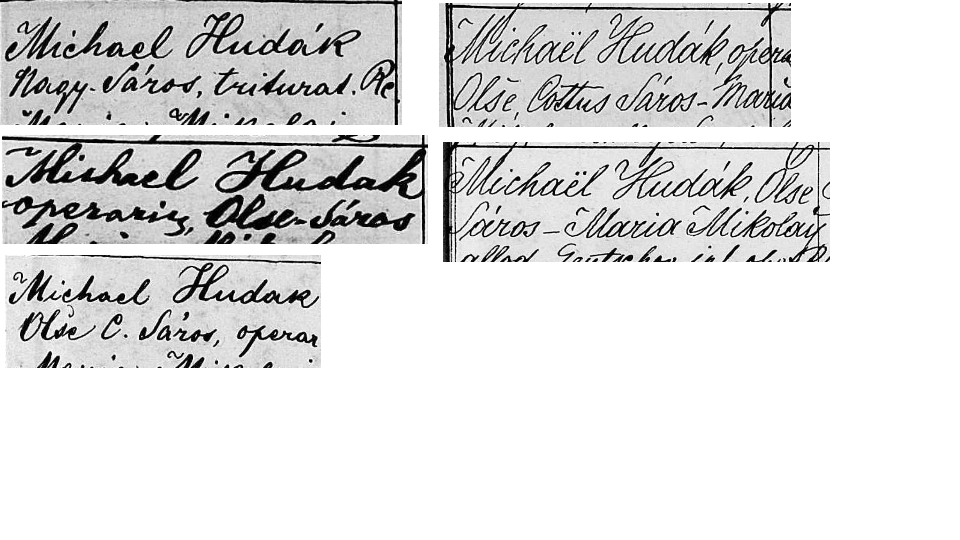 Michael Hudák
Nagy-Sáros, triturat. Re
Michaël Hudák, opera
Olšé, Cottus Sáros - Maria
Michael Hudak
operarius, Olse-Sáros
Michaël Hudák, Olse
Sáros - Maria Mikolay
Michael Hudak
Olše C. Sáros, operar